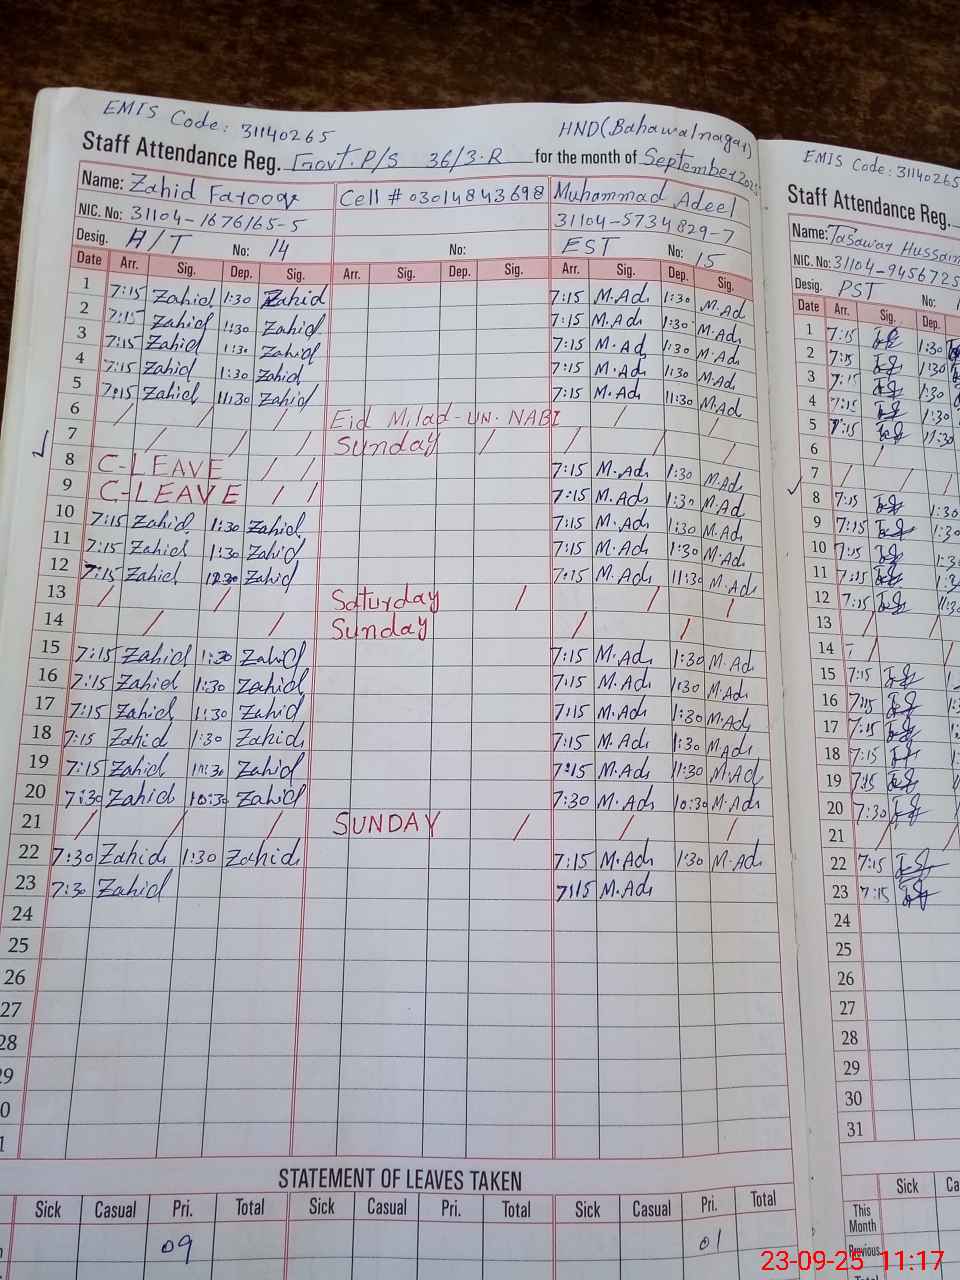 EMIS Code: 31140265
HND(Bahawalnagar)
Staff Attendance Reg. Govt. P/S 36/3-R for the month of September 2025
Name: Zahid Farooq Cell # 03014843698 Muhammad Adeel
NIC. No: 31104-1676165-5 31104-5734829-7
Desig. H/T No: 14 No: EST No: 15
Date Arr. Sig. Dep. Sig. Arr. Sig. Dep. Sig. Arr. Sig. Dep. Sig.
1 7:15 Zahid 1:30 Zahid 7:15 M.Ad 1:30 M.Ad
2 7:15 Zahid 1:30 Zahid 7:15 M.Ad 1:30 M.Ad
3 7:15 Zahid 1:30 Zahid 7:15 M.Ad 1:30 M.Ad
4 7:15 Zahid 1:30 Zahid 7:15 M.Ad 1:30 M.Ad
5 7:15 Zahid 11:30 Zahid 7:15 M.Ad 11:30 M.Ad
6 Eid Milad-UN-NABI
7 Sunday
8 C-LEAVE 7:15 M.Ad 1:30 M.Ad
9 C-LEAVE 7:15 M.Ad 1:30 M.Ad
10 7:15 Zahid 1:30 Zahid 7:15 M.Ad 1:30 M.Ad
11 7:15 Zahid 1:30 Zahid 7:15 M.Ad 1:30 M.Ad
12 7:15 Zahid Zahid 7:15 M.Ad 11:30 M.Ad
13 Saturday
14 Sunday
15 7:15 Zahid 1:30 Zahid 7:15 M.Ad 1:30 M.Ad
16 7:15 Zahid 1:30 Zahid 7:15 M.Ad 1:30 M.Ad
17 7:15 Zahid 1:30 Zahid 7:15 M.Ad 1:30 M.Ad
18 7:15 Zahid 1:30 Zahid 7:15 M.Ad 1:30 M.Ad
19 7:15 Zahid 11:30 Zahid 7:15 M.Ad 11:30 M.Ad
20 7:30 Zahid 10:30 Zahid 7:30 M.Ad 10:30 M.Ad
21 SUNDAY
22 7:30 Zahid 1:30 Zahid 7:15 M.Ad 1:30 M.Ad
23 7:30 Zahid 7:15 M.Ad
24
25
26
27
28
29
0
1
STATEMENT OF LEAVES TAKEN
Sick Casual Pri. Total Sick Casual Pri. Total Sick Casual Pri. Total
09 01
EMIS Code: 31140265
Staff Attendance Reg.
Name: Tasawar Hussain
NIC. No: 31104-9456725
Desig. PST No:
Date Arr. Sig. Dep.
1 7:15 1:30
2 7:15 1:30
3 7:15 1:30
4 7:15 1:30
5 7:15 11:30
6
7
8 7:15 1:30
9 7:15 1:30
10 7:15 1:30
11 7:15
12 7:15 11:30
13
14
15 7:15
16 7:15
17 7:15
18 7:15
19 7:15
20 7:30
21
22 7:15
23 7:15
24
25
26
27
28
29
30
31
Sick Ca
This Month
Previous
23-09-25 11:17